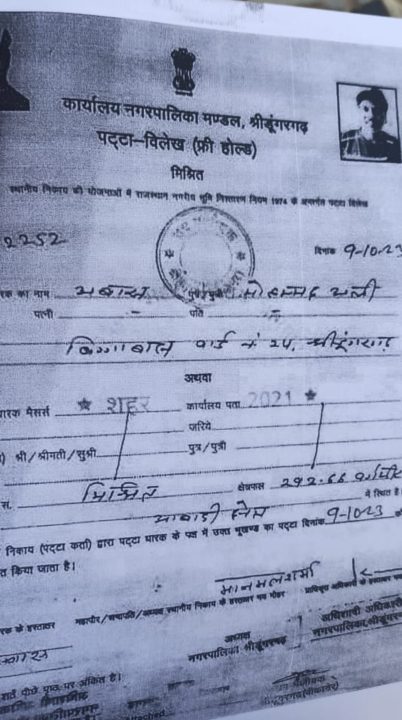 कार्यालय नगरपालिका मण्डल, श्रीडूंगरगढ़
पट्टा–विलेख (फ्री होल्ड)
मिश्रित
स्थानीय निकाय की योजनाओं में राजस्थान नगरीय भूमि निस्तारण नियम 1974 के अन्तर्गत पट्टा विलेख
2252
दिनांक 9-10-23
रक का नाम पुत्र/पुत्री मोहम्मद अली
पत्नी - पति -
वार्ड नं 24, श्रीडूंगरगढ़
अथवा
धारक मैसर्स ★ शहर कार्यालय पता 2021 ★
जरिये
) श्री/श्रीमती/सुश्री पुत्र/पुत्री
स. मिश्रित क्षेत्रफल 292.66
में स्थित है।
निकाय (पट्टा कर्ता) द्वारा पट्टा धारक के पक्ष में उक्त भूखण्ड का पट्टा दिनांक 9-10-23
त किया जाता है।
मानमल शर्मा
रक के हस्ताक्षर महापौर/सभापति/अध्यक्ष स्थानीय निकाय के हस्ताक्षर मय मोहर प्राधिकृत अधिकारी के हस्ताक्षर
अध्यक्ष अधिशाषी अधिकारी
नगरपालिका श्रीडूंगरगढ़ नगरपालिका, श्रीडूंगर
शर्तें पीछे पृष्ठ पर अंकित है।